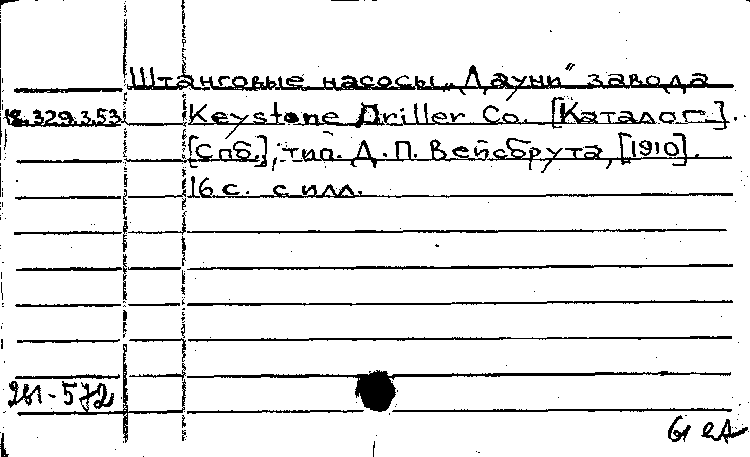 Штанговые насосы „Дауни" завода
18.329.3.53 Keystone Driller Co. [Каталог].
[Спб.], тип. Д.П. Вейсбрута, [1910].
16 с. с илл.
281-572